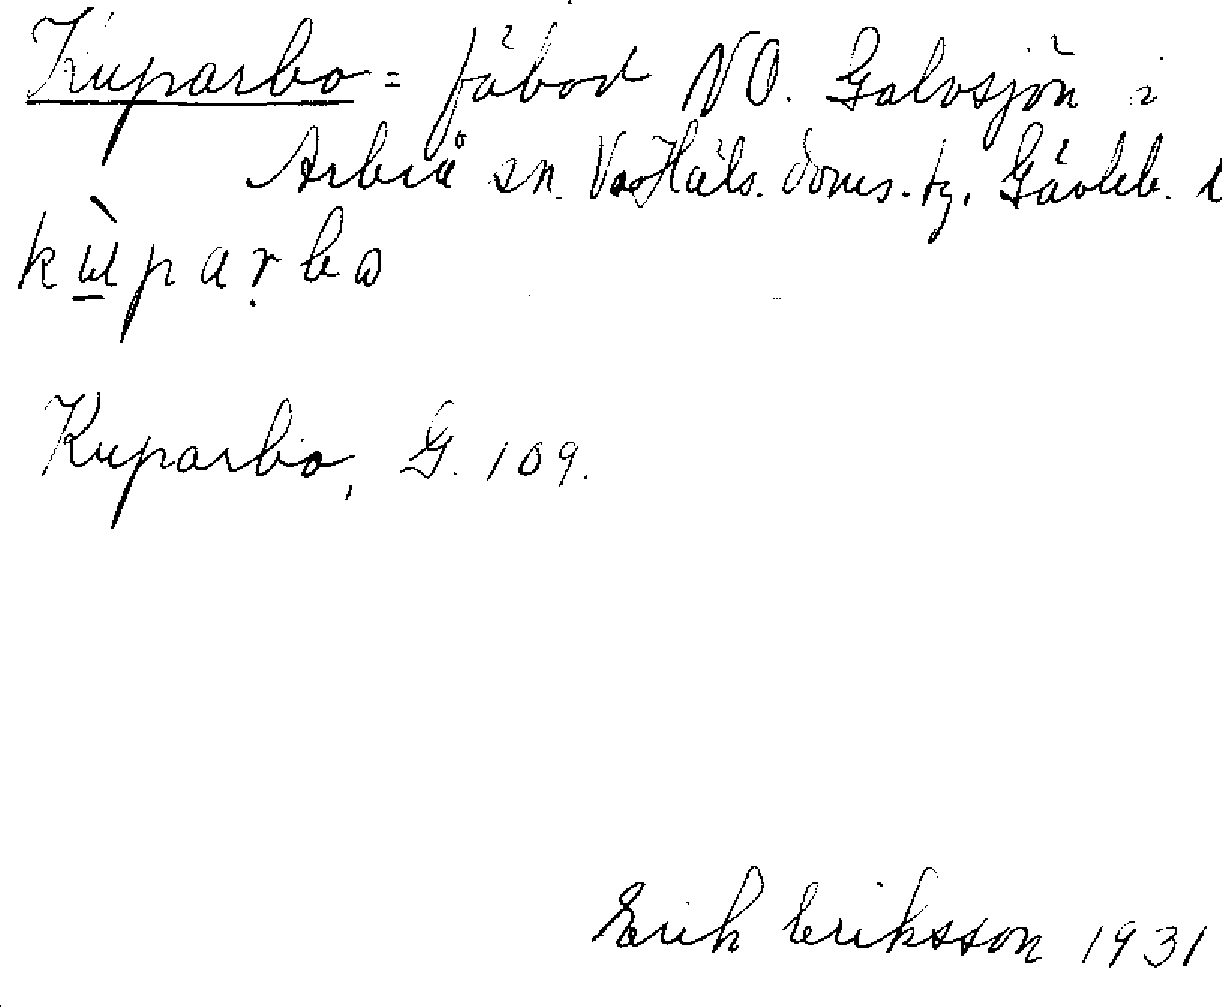 Kuparbo = fäbod NO. Galvsjön i
Arbrå sn. V. Häls. doms. tg. Gävleb. l
kùparbo
Kuparbo, G. 109.
Erik Eriksson 1931